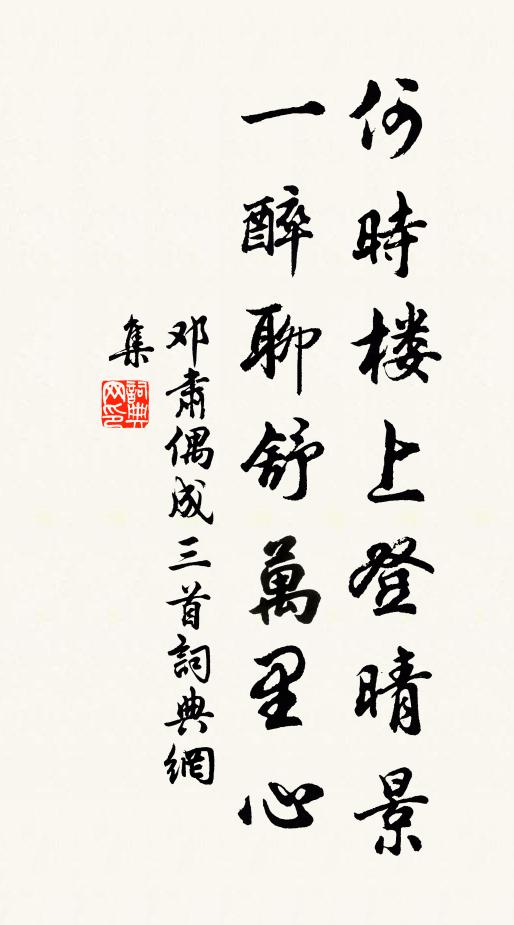 何時楼上登晴景
一醉聊舒萬里心
邓肅偶成三首詞典網
集
詞典網印